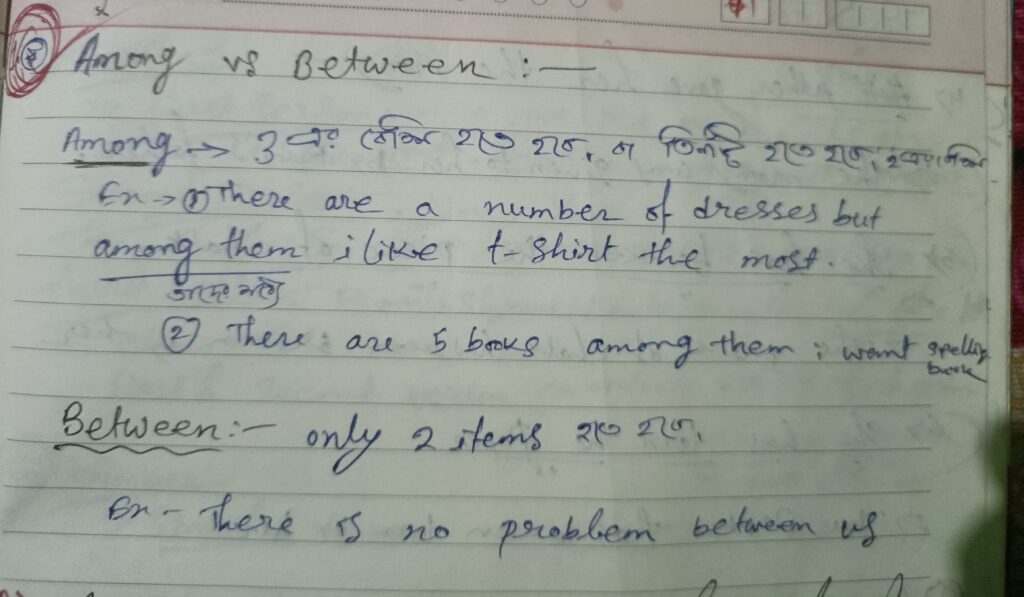 Among vs Between :—
Among → 3 এর বেশি হতে হবে, বা তিনটি হতে হবে, ২ এর বেশি
Ex → ① There are a number of dresses but
among them i like t-shirt the most.
তাদের মধ্যে
② There are 5 books, among them i want spelling
book
Between :— only 2 items হতে হবে,
Ex - There is no problem between us